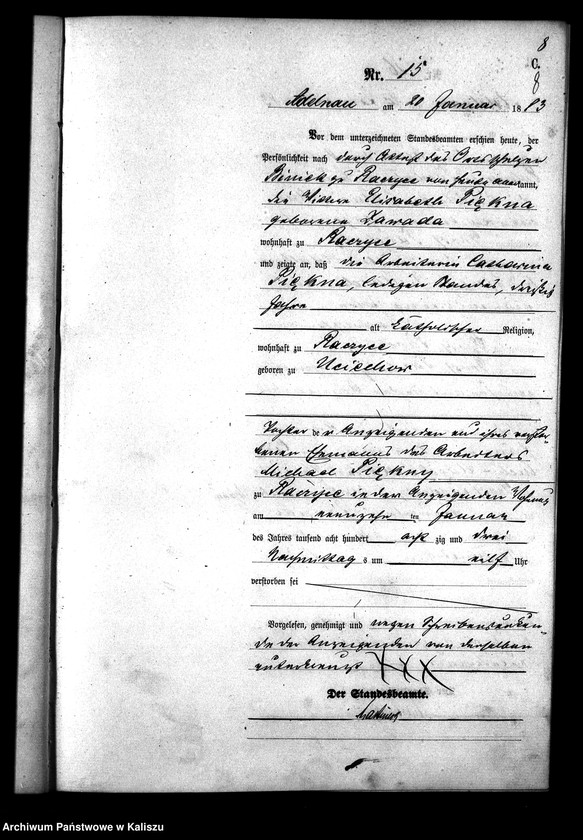 8
C.
8
Nr. 15
Adelnau am 20 Januar 1883
Vor dem unterzeichneten Standesbeamten erschien heute, der
Persönlichkeit nach durch Attest des Ortsschulzen
zu Raczyce von heute anerkannt,
die Wittwe Elisabeth Piękna
geborene Zawada
wohnhaft zu Raczyce
und zeigte an, daß die Arbeiterin Catharina
Piękna, ledigen Standes, dreißig
Jahre
alt katholischer Religion,
wohnhaft zu Raczyce
geboren zu Uciechow
Tochter der Anzeigenden und ihres verstor-
benen Ehemannes des Arbeiters
Michael Piękny
zu Raczyce in der Anzeigenden Wohnung
am neunzehn ten Januar
des Jahres tausend acht hundert acht zig und drei
Nachmittag s um eilf Uhr
verstorben sei
Vorgelesen, genehmigt und wegen Schreibensunkun-
de der Anzeigenden von derselben
unterkreuzt XXX
Der Standesbeamte.
Archiwum Państwowe w Kaliszu